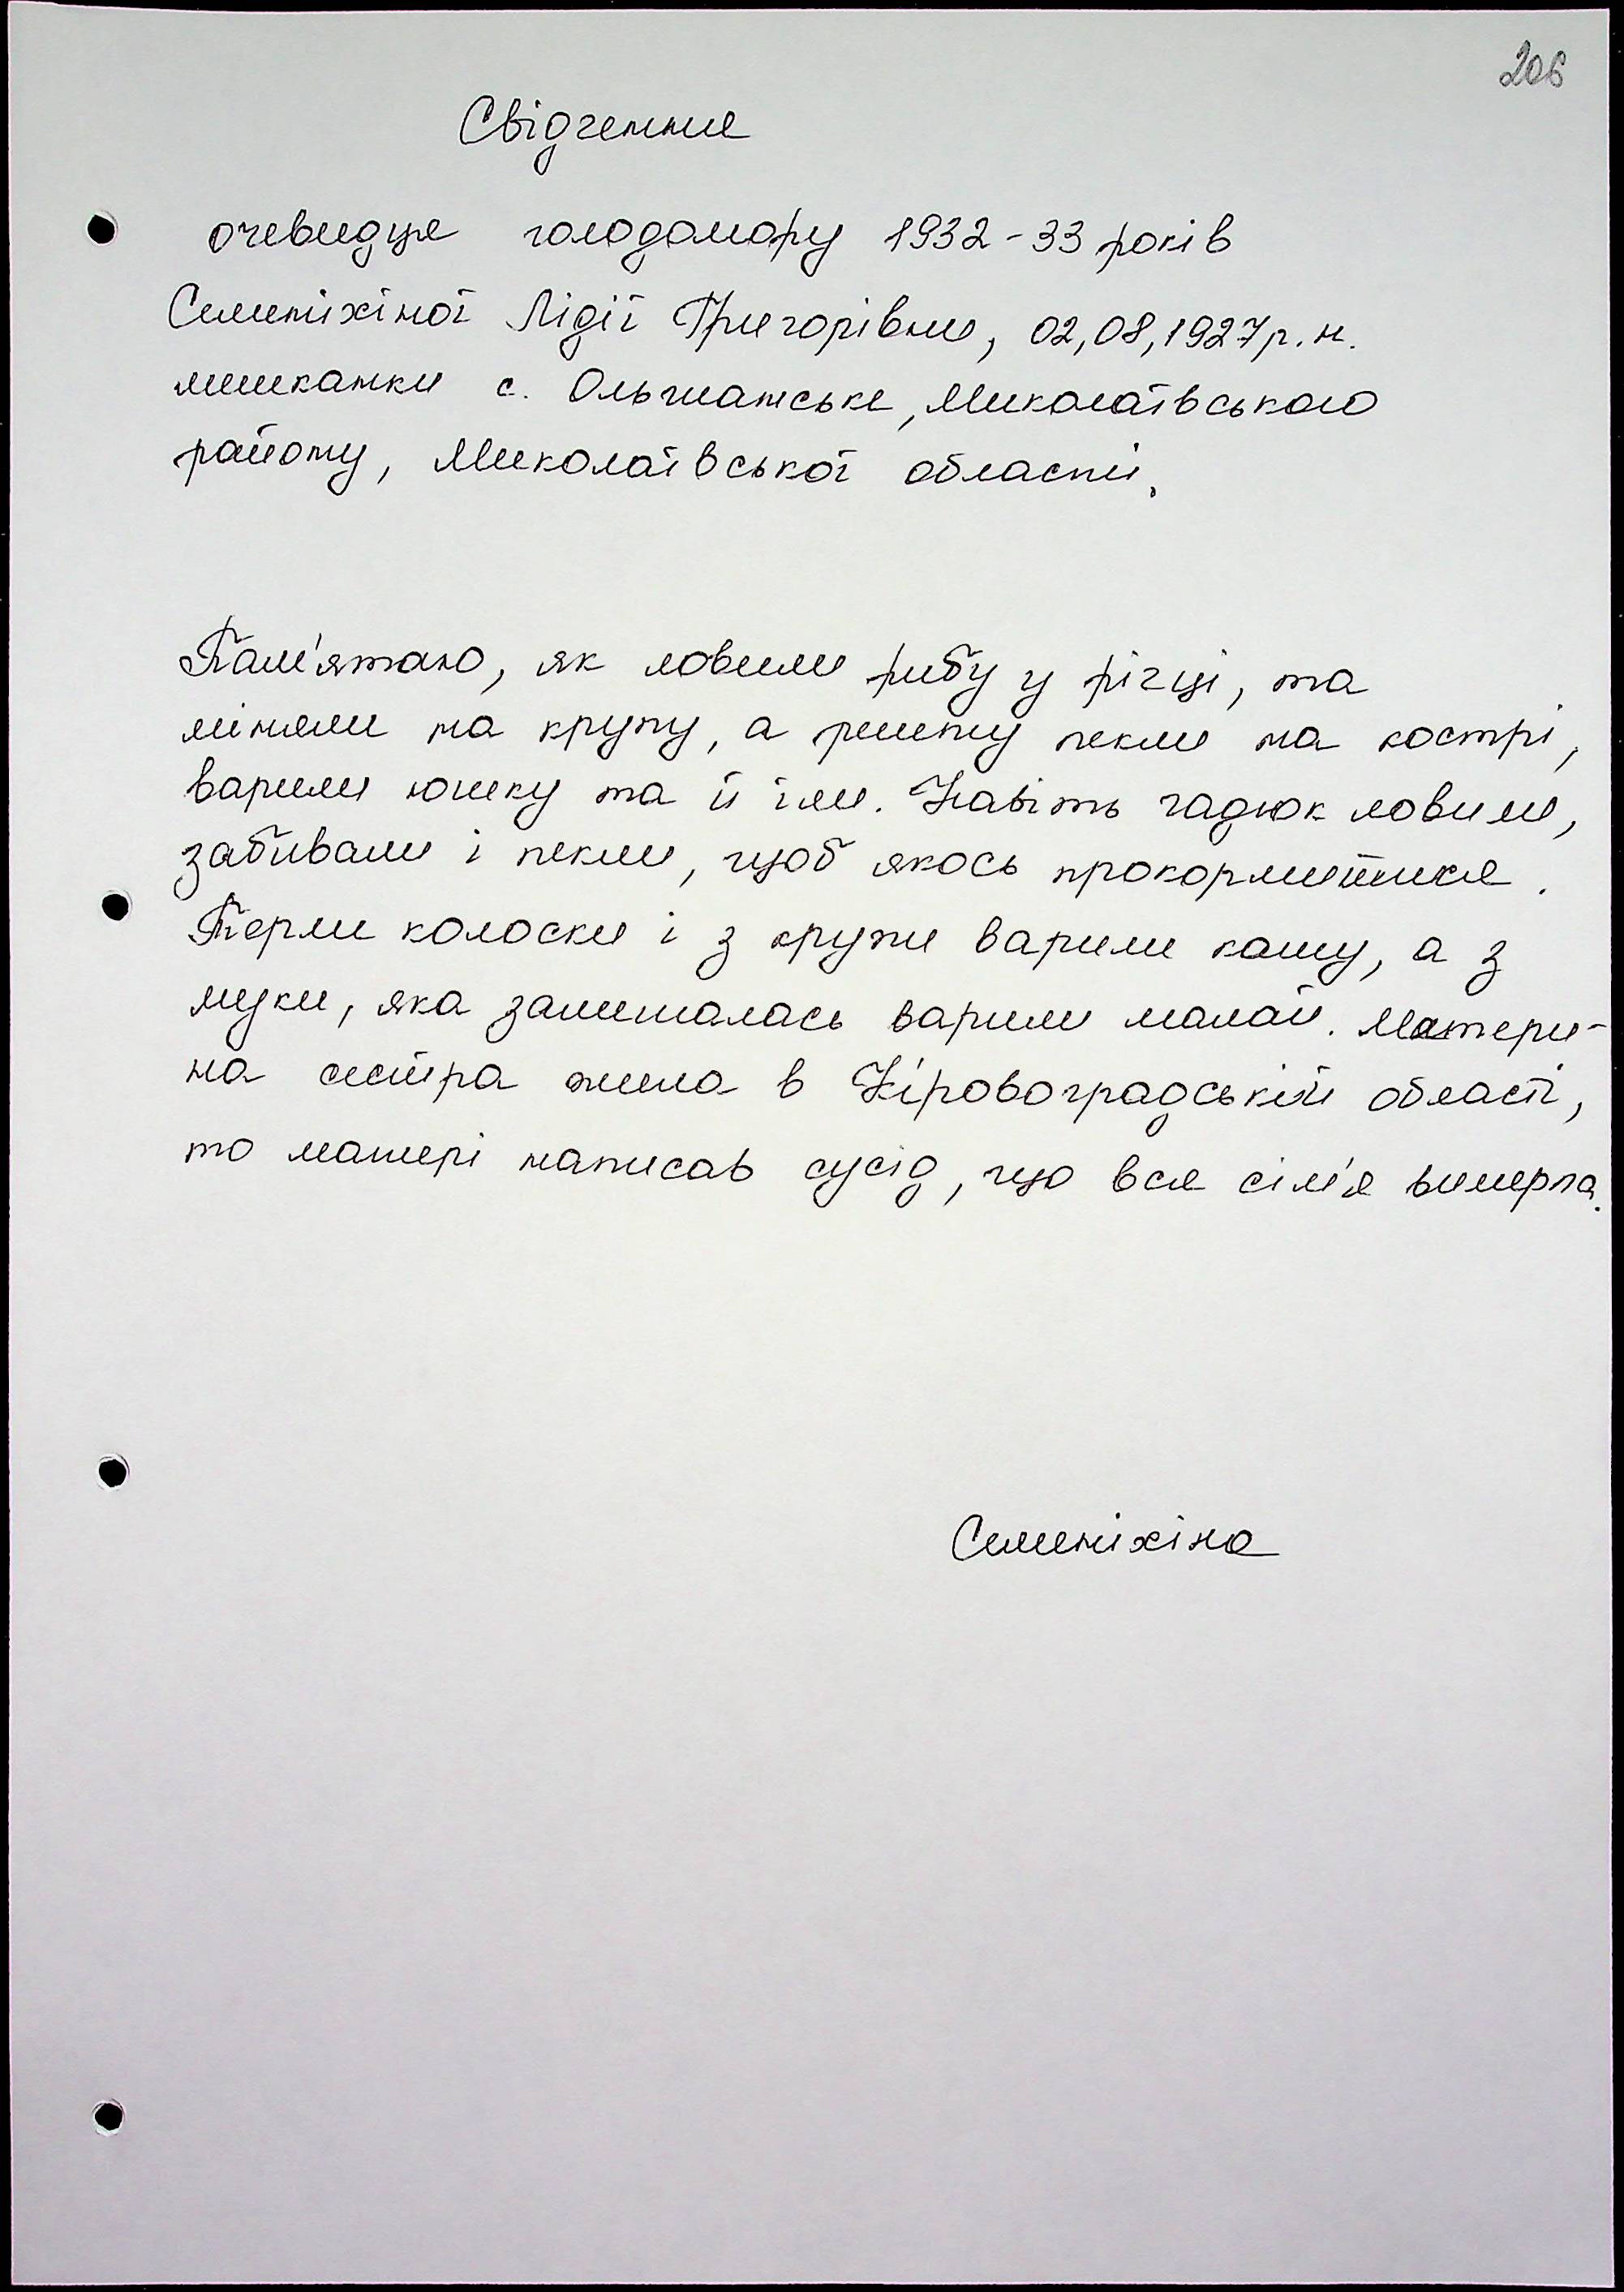 206
Свідчення
очевидця голодомору 1932-33 років
Семеніхіної Лідії Григорівни, 02,08,1927р.н.
мешканки с. Ольшанське, Миколаївського
району, Миколаївської області.
Пам'ятаю, як ловили рибу у річці, та
міняли на крупу, а решту пекли на кострі,
варили юшку та й їли. Навіть гадюк ловили,
забивали і пекли, щоб якось прокормитися.
Терли колоски і з крупи варили кашу, а з
муки, яка залишалась варили малай. Матери-
на сестра жила в Кіровоградській області,
то матері написав сусід, що вся сім'я вимерла.
Семеніхіна